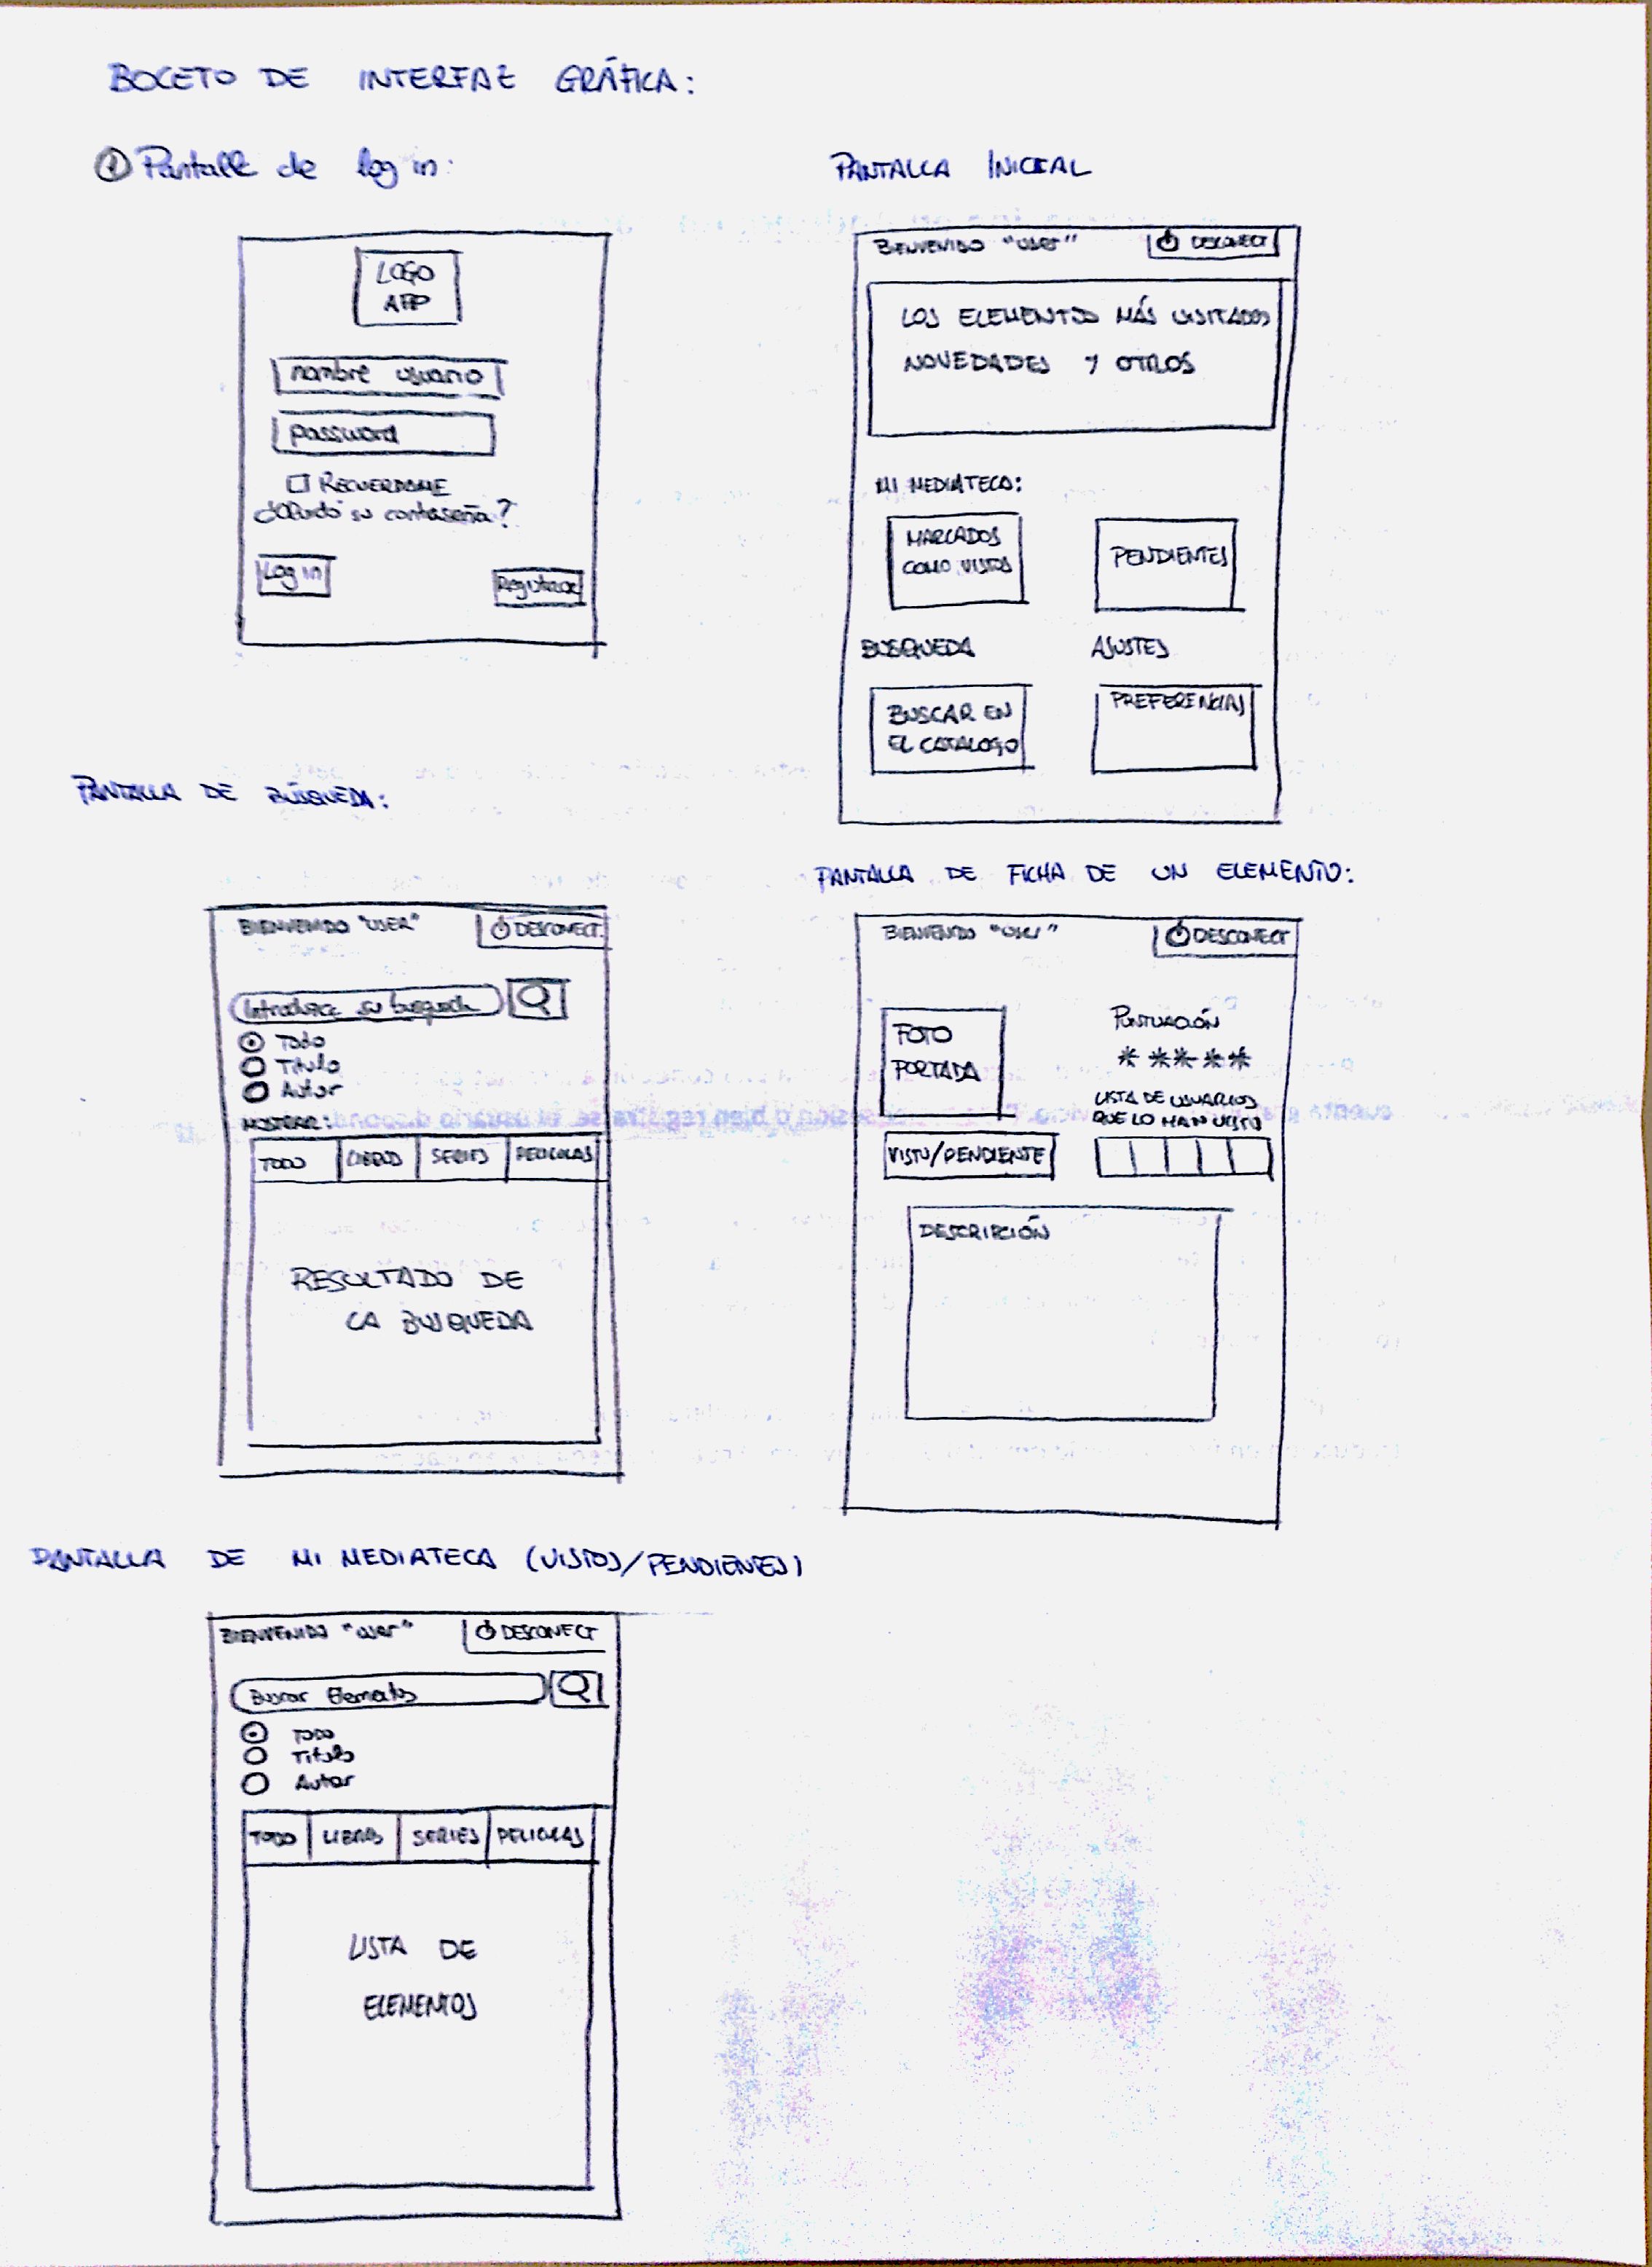 BOCETO DE INTERFAZ GRÁFICA:
① Pantalla de log in:
LOGO
APP
nombre usuario
password
RECUERDAME
¿Olvidó su contraseña?
Log in
Registrar
PANTALLA INICIAL
BIENVENIDO "USER"
DESCONECT
LOS ELEMENTOS MÁS VISITADOS
NOVEDADES Y OTROS
MI MEDIATECA:
MARCADOS
COMO VISTOS
PENDIENTES
BÚSQUEDA
AJUSTES
BUSCAR EN
EL CATALOGO
PREFERENCIAS
PANTALLA DE BÚSQUEDA:
BIENVENIDO "USER"
DESCONECT.
Introduzca su busqueda
Todo
Título
Autor
MOSTRAR:
TODO LIBROS SERIES PELICULAS
RESULTADO DE
LA BUSQUEDA
PANTALLA DE FICHA DE UN ELEMENTO:
BIENVENIDO "USER"
DESCONECT
FOTO
PORTADA
PUNTUACIÓN
* * * * *
LISTA DE USUARIOS
QUE LO HAN VISTO
VISTO/PENDIENTE
DESCRIPCIÓN
PANTALLA DE MI MEDIATECA (VISTOS/PENDIENTES)
BIENVENIDO "USER"
DESCONECT
Buscar Elementos
TODO
Titulo
Autor
TODO LIBROS SERIES PELICULAS
LISTA DE
ELEMENTOS